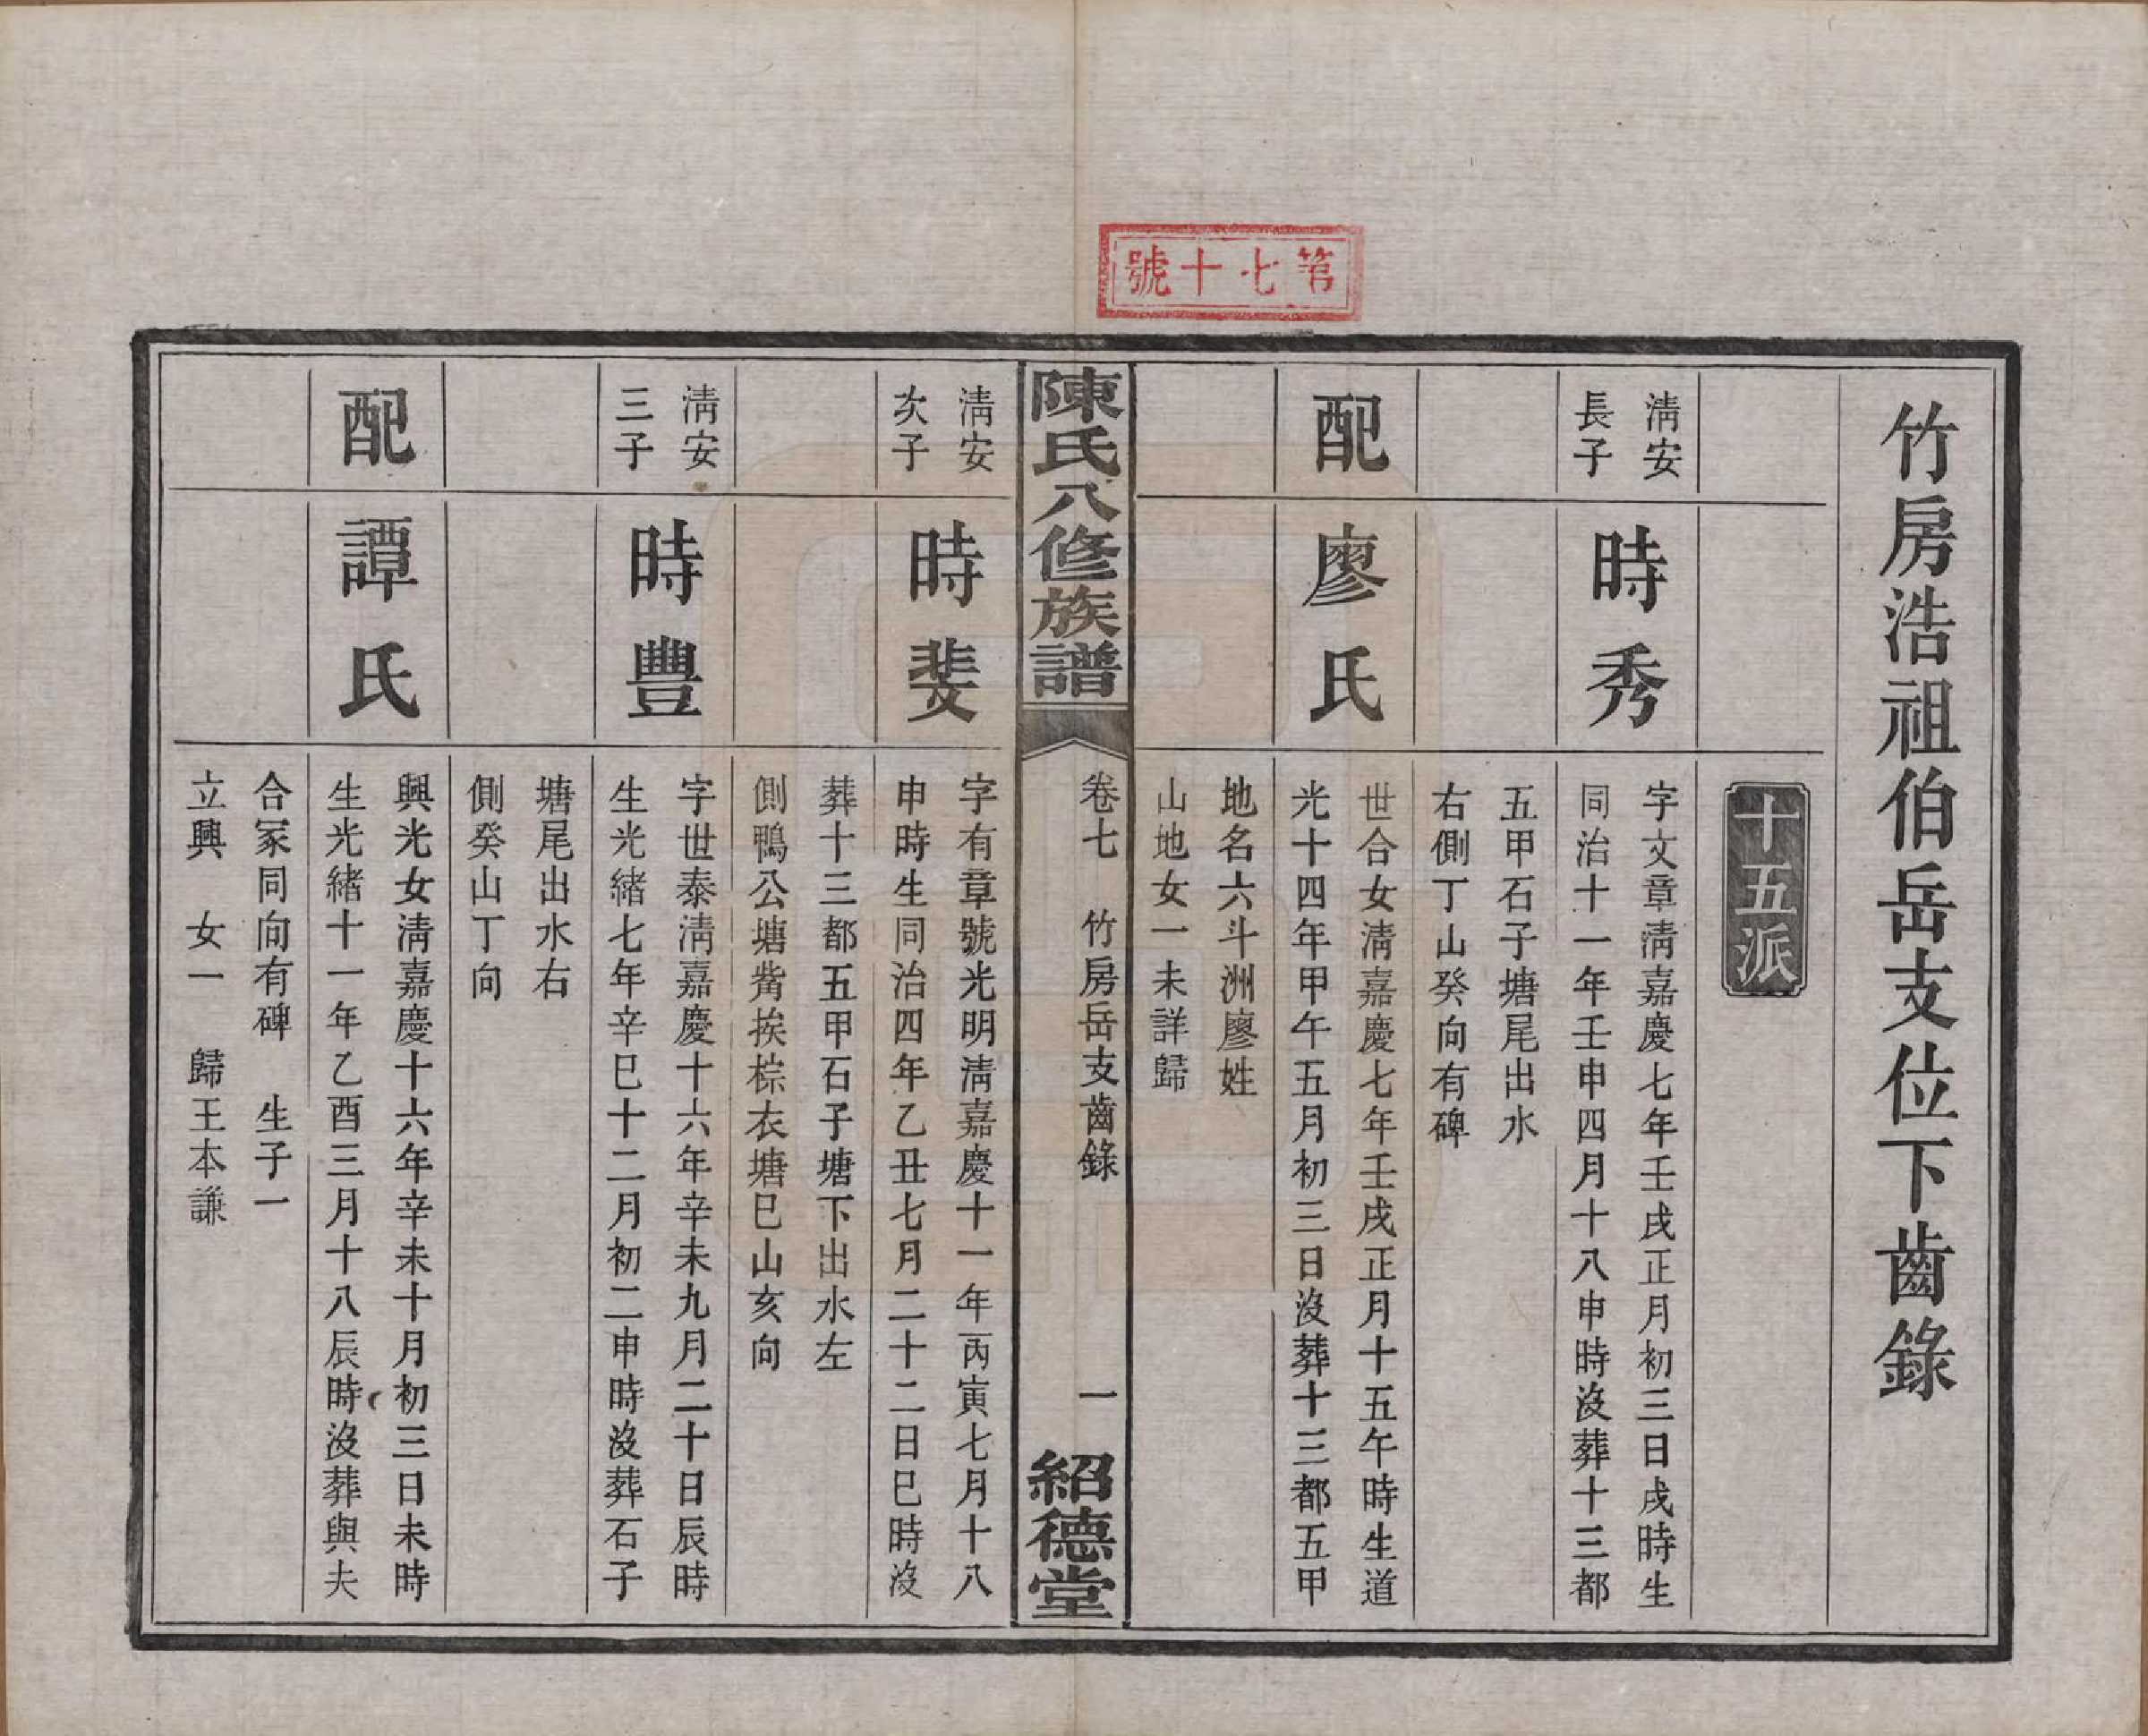 第七十號
竹房浩祖伯岳支位下齒錄
十五派
淸安
長子
時秀
字文章淸嘉慶七年壬戌正月初三日戌時生
同治十一年壬申四月十八申時沒葬十三都
五甲石子塘尾出水
右側丁山癸向有碑
配
廖氏
世合女淸嘉慶七年壬戌正月十五午時生道
光十四年甲午五月初三日沒葬十三都五甲
地名六斗洲廖姓
山地女一未詳歸
陳氏八修族譜
卷七 竹房岳支齒錄
一
紹德堂
淸安
次子
時斐
字有章號光明淸嘉慶十一年丙寅七月十八
申時生同治四年乙丑七月二十二日巳時沒
葬十三都五甲石子塘下出水左
側鴨公塘觜挨棕衣塘巳山亥向
淸安
三子
時豐
字世泰淸嘉慶十六年辛未九月二十日辰時
生光緒七年辛巳十二月初二申時沒葬石子
塘尾出水右
側癸山丁向
配
譚氏
興光女淸嘉慶十六年辛未十月初三日未時
生光緒十一年乙酉三月十八辰時沒葬與夫
合冢同向有碑 生子一
立興 女一 歸王本謙